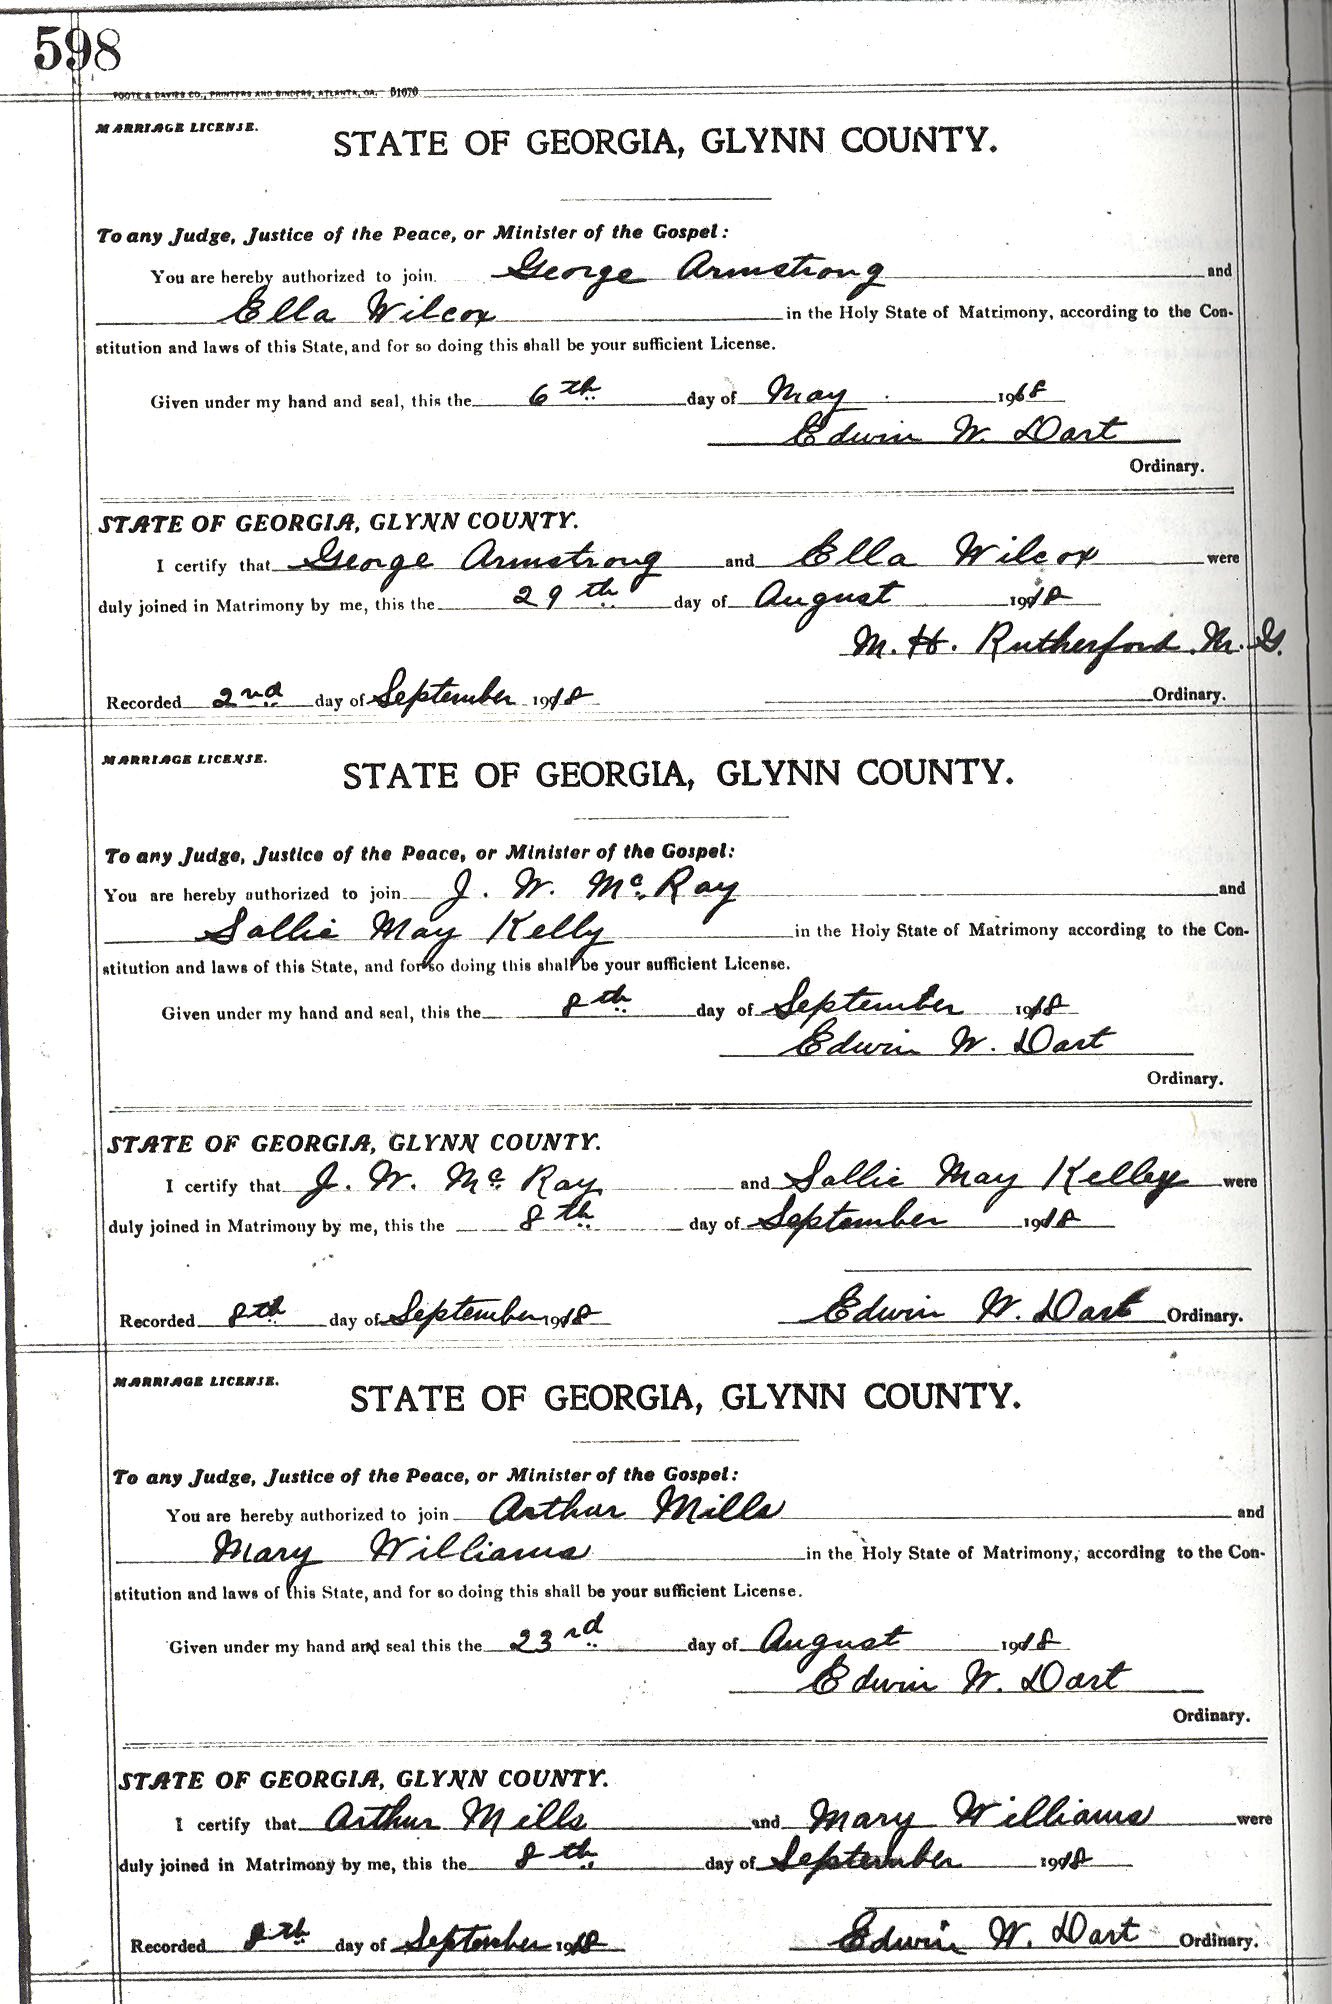 598
FOOTE & DAVIES CO., PRINTERS AND BINDERS, ATLANTA, GA. 51676
MARRIAGE LICENSE.
STATE OF GEORGIA, GLYNN COUNTY.
To any Judge, Justice of the Peace, or Minister of the Gospel:
You are hereby authorized to join George Armstrong and
Ella Wilcox in the Holy State of Matrimony, according to the Con-
stitution and laws of this State, and for so doing this shall be your sufficient License.
Given under my hand and seal, this the 6th day of May 1918
Edwin W. Dart
Ordinary.
STATE OF GEORGIA, GLYNN COUNTY.
I certify that George Armstrong and Ella Wilcox were
duly joined in Matrimony by me, this the 29th day of August 1918
M. H. Rutherford M. G.
Recorded 2nd day of September 1918 Ordinary.
MARRIAGE LICENSE.
STATE OF GEORGIA, GLYNN COUNTY.
To any Judge, Justice of the Peace, or Minister of the Gospel:
You are hereby authorized to join J. W. McRay and
Sallie May Kelly in the Holy State of Matrimony according to the Con-
stitution and laws of this State, and for so doing this shall be your sufficient License.
Given under my hand and seal, this the 8th day of September 1918
Edwin W. Dart
Ordinary.
STATE OF GEORGIA, GLYNN COUNTY.
I certify that J. W. McRay and Sallie May Kelley were
duly joined in Matrimony by me, this the 8th day of September 1918
Recorded 8th day of September 1918 Edwin W. Dart Ordinary.
MARRIAGE LICENSE.
STATE OF GEORGIA, GLYNN COUNTY.
To any Judge, Justice of the Peace, or Minister of the Gospel:
You are hereby authorized to join Arthur Mills and
Mary Williams in the Holy State of Matrimony, according to the Con-
stitution and laws of this State, and for so doing this shall be your sufficient License.
Given under my hand and seal this the 23rd day of August 1918
Edwin W. Dart
Ordinary.
STATE OF GEORGIA, GLYNN COUNTY.
I certify that Arthur Mills and Mary Williams were
duly joined in Matrimony by me, this the 8th day of September 1918
Recorded 8th day of September 1918 Edwin W. Dart Ordinary.